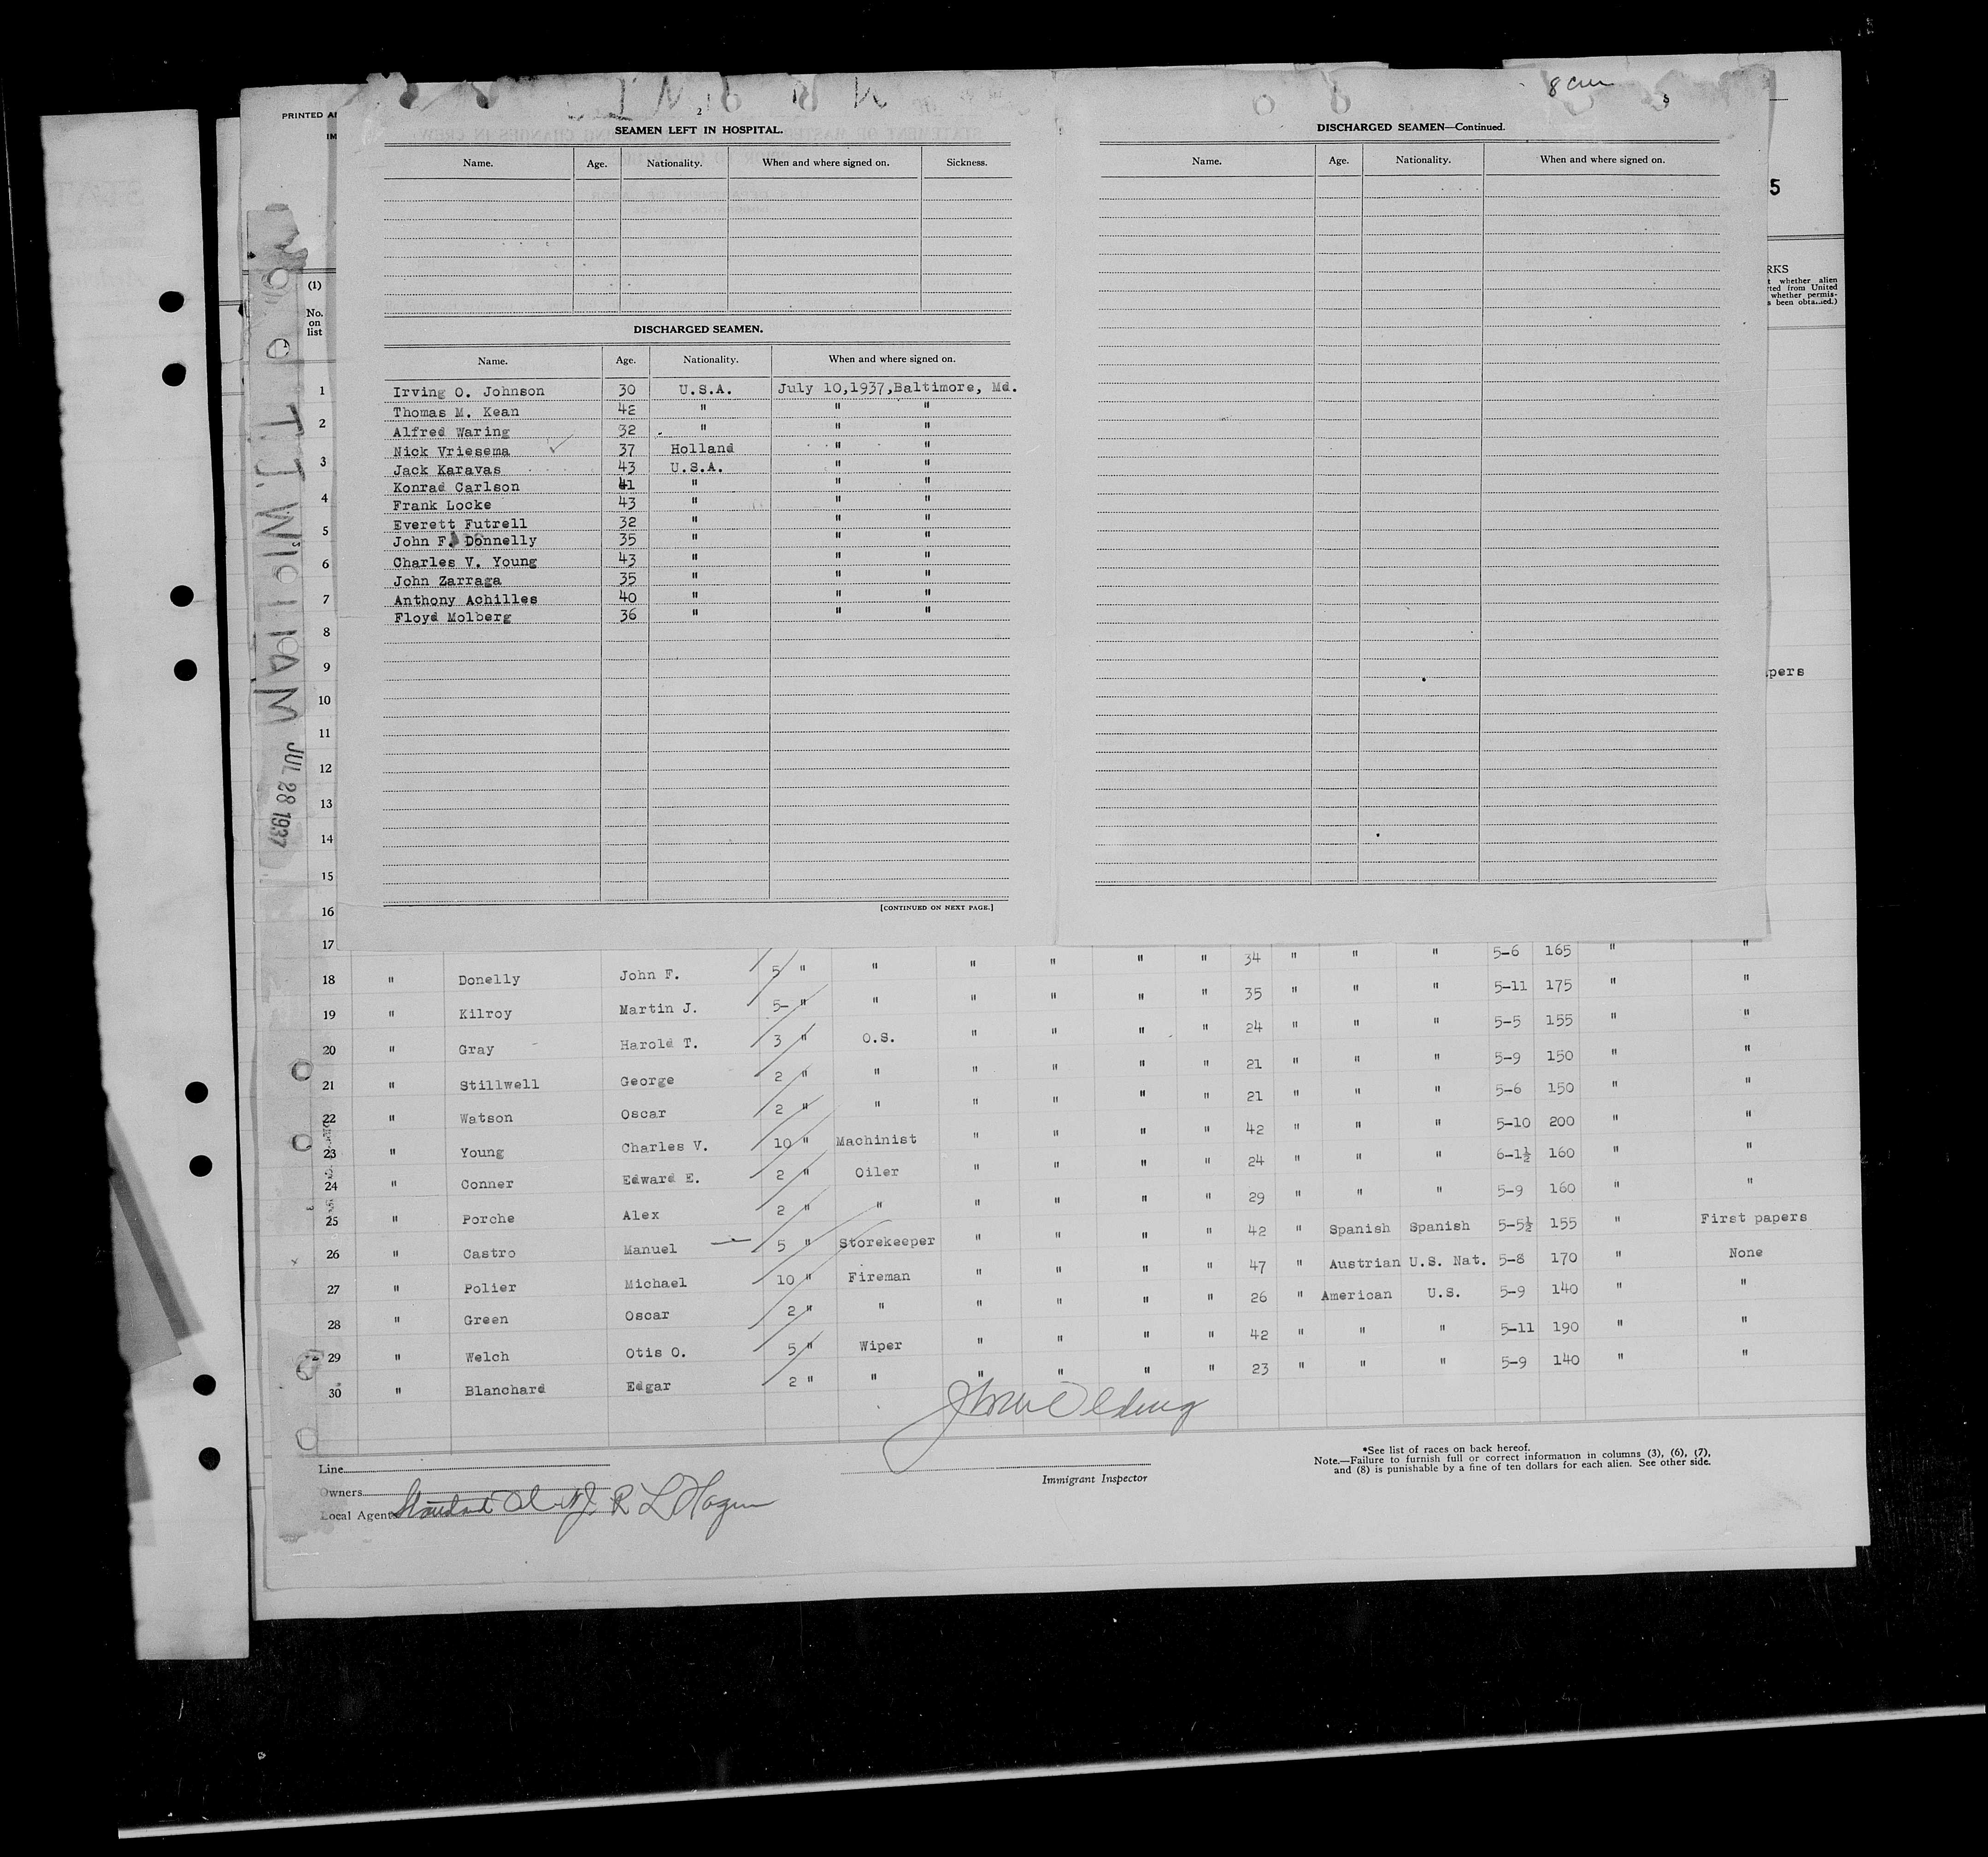 PRINTED
IM
2
SEAMEN LEFT IN HOSPITAL.
Name. Age. Nationality. When and where signed on. Sickness.
DISCHARGED SEAMEN.
Name. Age. Nationality. When and where signed on.
Irving O. Johnson 30 U.S.A. July 10,1937,Baltimore, Md.
Thomas M. Kean 42 " " "
Alfred Waring 32 " " "
Nick Vriesema 37 Holland " "
Jack Karavas 43 U.S.A. " "
Konrad Carlson 41 " " "
Frank Locke 43 " " "
Everett Futrell 32 " " "
John F. Donnelly 35 " " "
Charles V. Young 43 " " "
John Zarraga 35 " " "
Anthony Achilles 40 " " "
Floyd Molberg 36 " " "
[CONTINUED ON NEXT PAGE.]
DISCHARGED SEAMEN—Continued.
Name. Age. Nationality. When and where signed on.
5
RKS
t whether alien
rted from United
whether permis-
s been obtained.)
pers
(1)
No.
on
list
1
2
3
4
5
6
7
8
9
10
11
12
13
14
15
16
17
T.J. WILLIAM
JUL 28 1937
18 " Donelly John F. 5 " " " " " " 34 " " " 5-6 165 " "
19 " Kilroy Martin J. 5- " " " " " " 35 " " " 5-11 175 " "
20 " Gray Harold T. 3 " O.S. " " " " 24 " " " 5-5 155 " "
21 " Stillwell George 2 " " " " " " 21 " " " 5-9 150 " "
22 " Watson Oscar 2 " " " " " " 21 " " " 5-6 150 " "
23 " Young Charles V. 10 " Machinist " " " " 42 " " " 5-10 200 " "
24 " Conner Edward E. 2 " Oiler " " " " 24 " " " 6-1½ 160 " "
25 " Porche Alex 2 " " " " " " 29 " " " 5-9 160 " "
26 " Castro Manuel 5 " Storekeeper " " " " 42 " Spanish Spanish 5-5½ 155 " First papers
27 " Polier Michael 10 " Fireman " " " " 47 " Austrian U.S. Nat. 5-8 170 " None
28 " Green Oscar 2 " " " " " " 26 " American U.S. 5-9 140 " "
29 " Welch Otis O. 5 " Wiper " " " " 42 " " " 5-11 190 " "
30 " Blanchard Edgar 2 " " " " " " 23 " " " 5-9 140 " "
Line
Owners
Local Agents
R L Hagen
Immigrant Inspector
*See list of races on back hereof.
Note.—Failure to furnish full or correct information in columns (3), (6), (7),
and (8) is punishable by a fine of ten dollars for each alien. See other side.